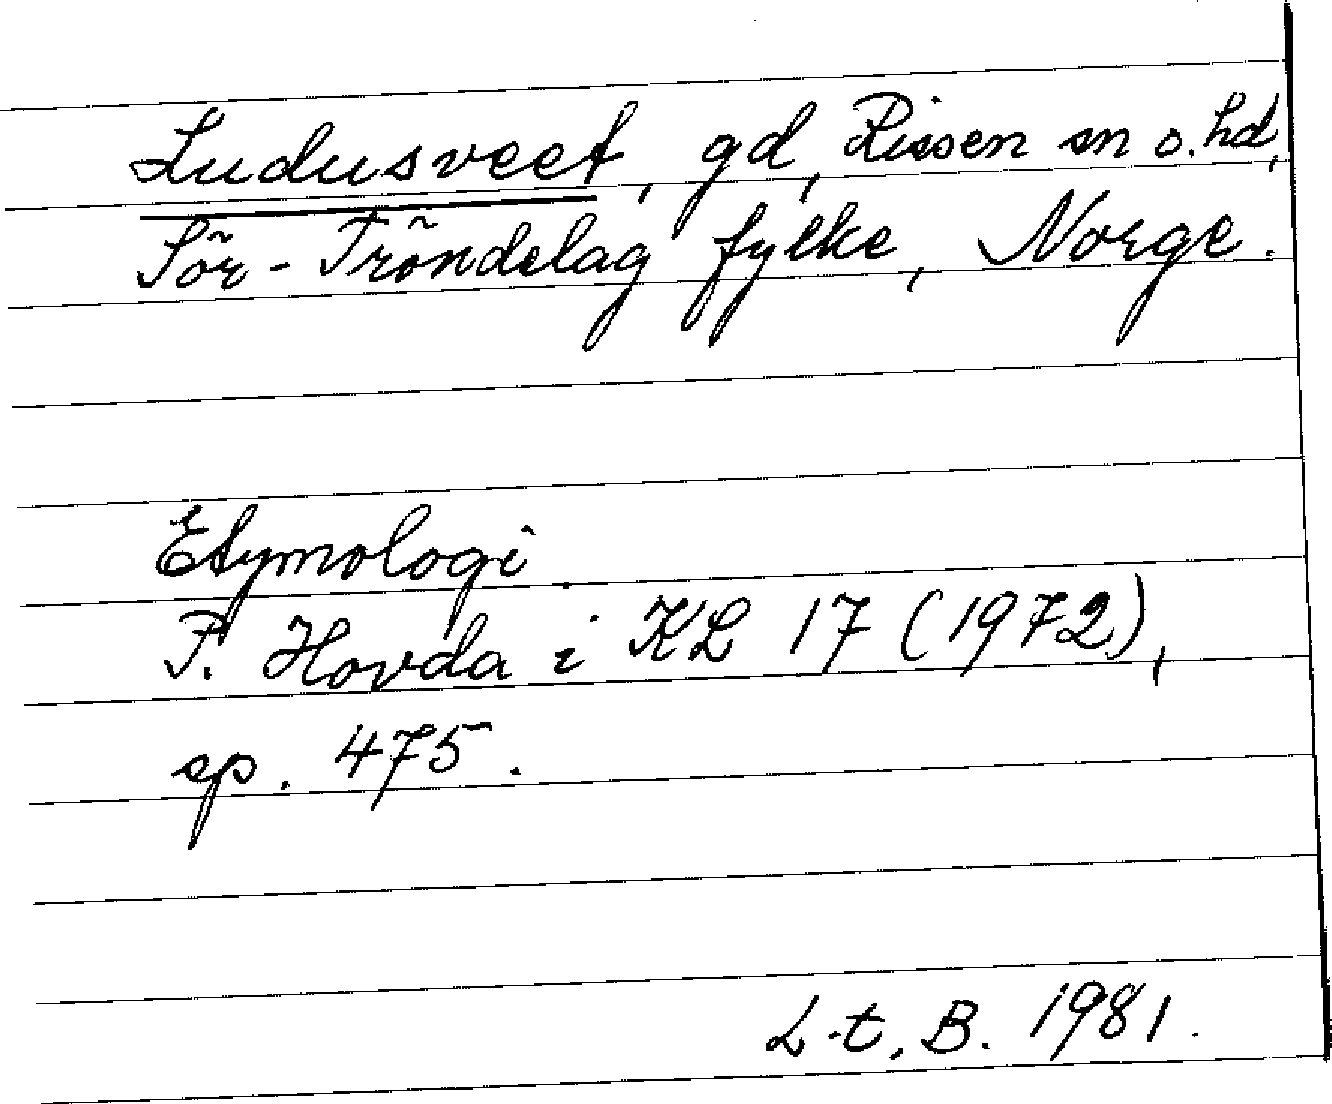 Ludusveet, gd, Rissen sn o. hd,
Sör-Tröndelag fylke, Norge.
Etymologi.
P. Hovda i KL 17 (1972),
sp. 475.
L-t, B. 1981.